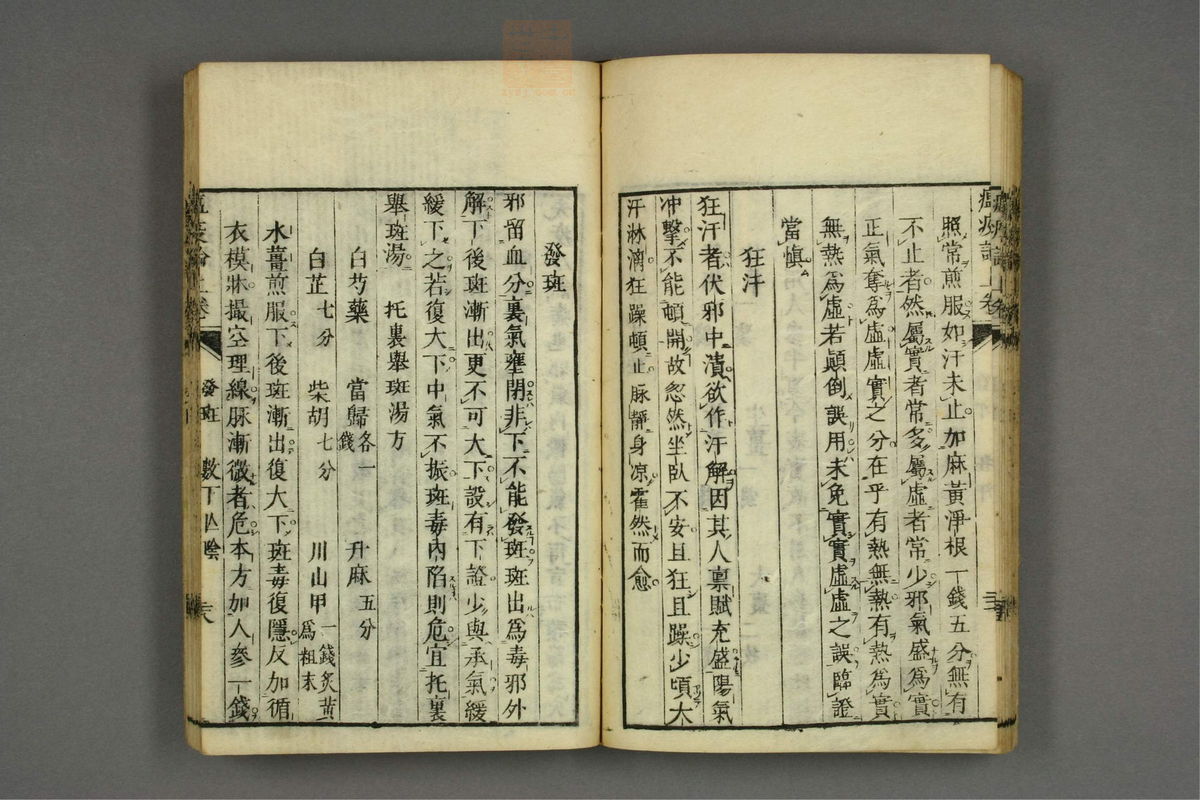 照常煎服如汗未止加麻黃淨根一錢五分無有
不止者然屬實者常多屬虛者常少邪氣盛為實
正氣奪為虛虛實之分在乎有熱無熱有熱為實
無熱為虛若顛倒誤用未免實實虛虛之誤臨證
當慎
狂汗
狂汗者伏邪中潰欲作汗解因其人禀賦充盛陽氣
冲擊不能頓開故忽然坐臥不安且狂且躁少頃大
汗淋漓狂躁頓止脉靜身凉霍然而愈
發斑
邪留血分裏氣壅閉非下不能發斑斑出為毒邪外
解下後斑漸出更不可大下設有下證少與承氣緩
緩下之若復大下中氣不振斑毒內陷則危宜托裏
舉斑湯 托裏舉斑湯方
白芍藥 當歸各一錢 升麻五分
白芷七分 柴胡七分 川山甲二錢炙黃為粗末
水薑煎服下後斑漸出復大下斑毒復隱反加循
衣模牀撮空理線脉漸微者危本方加人參一錢
發斑 數下亡陰